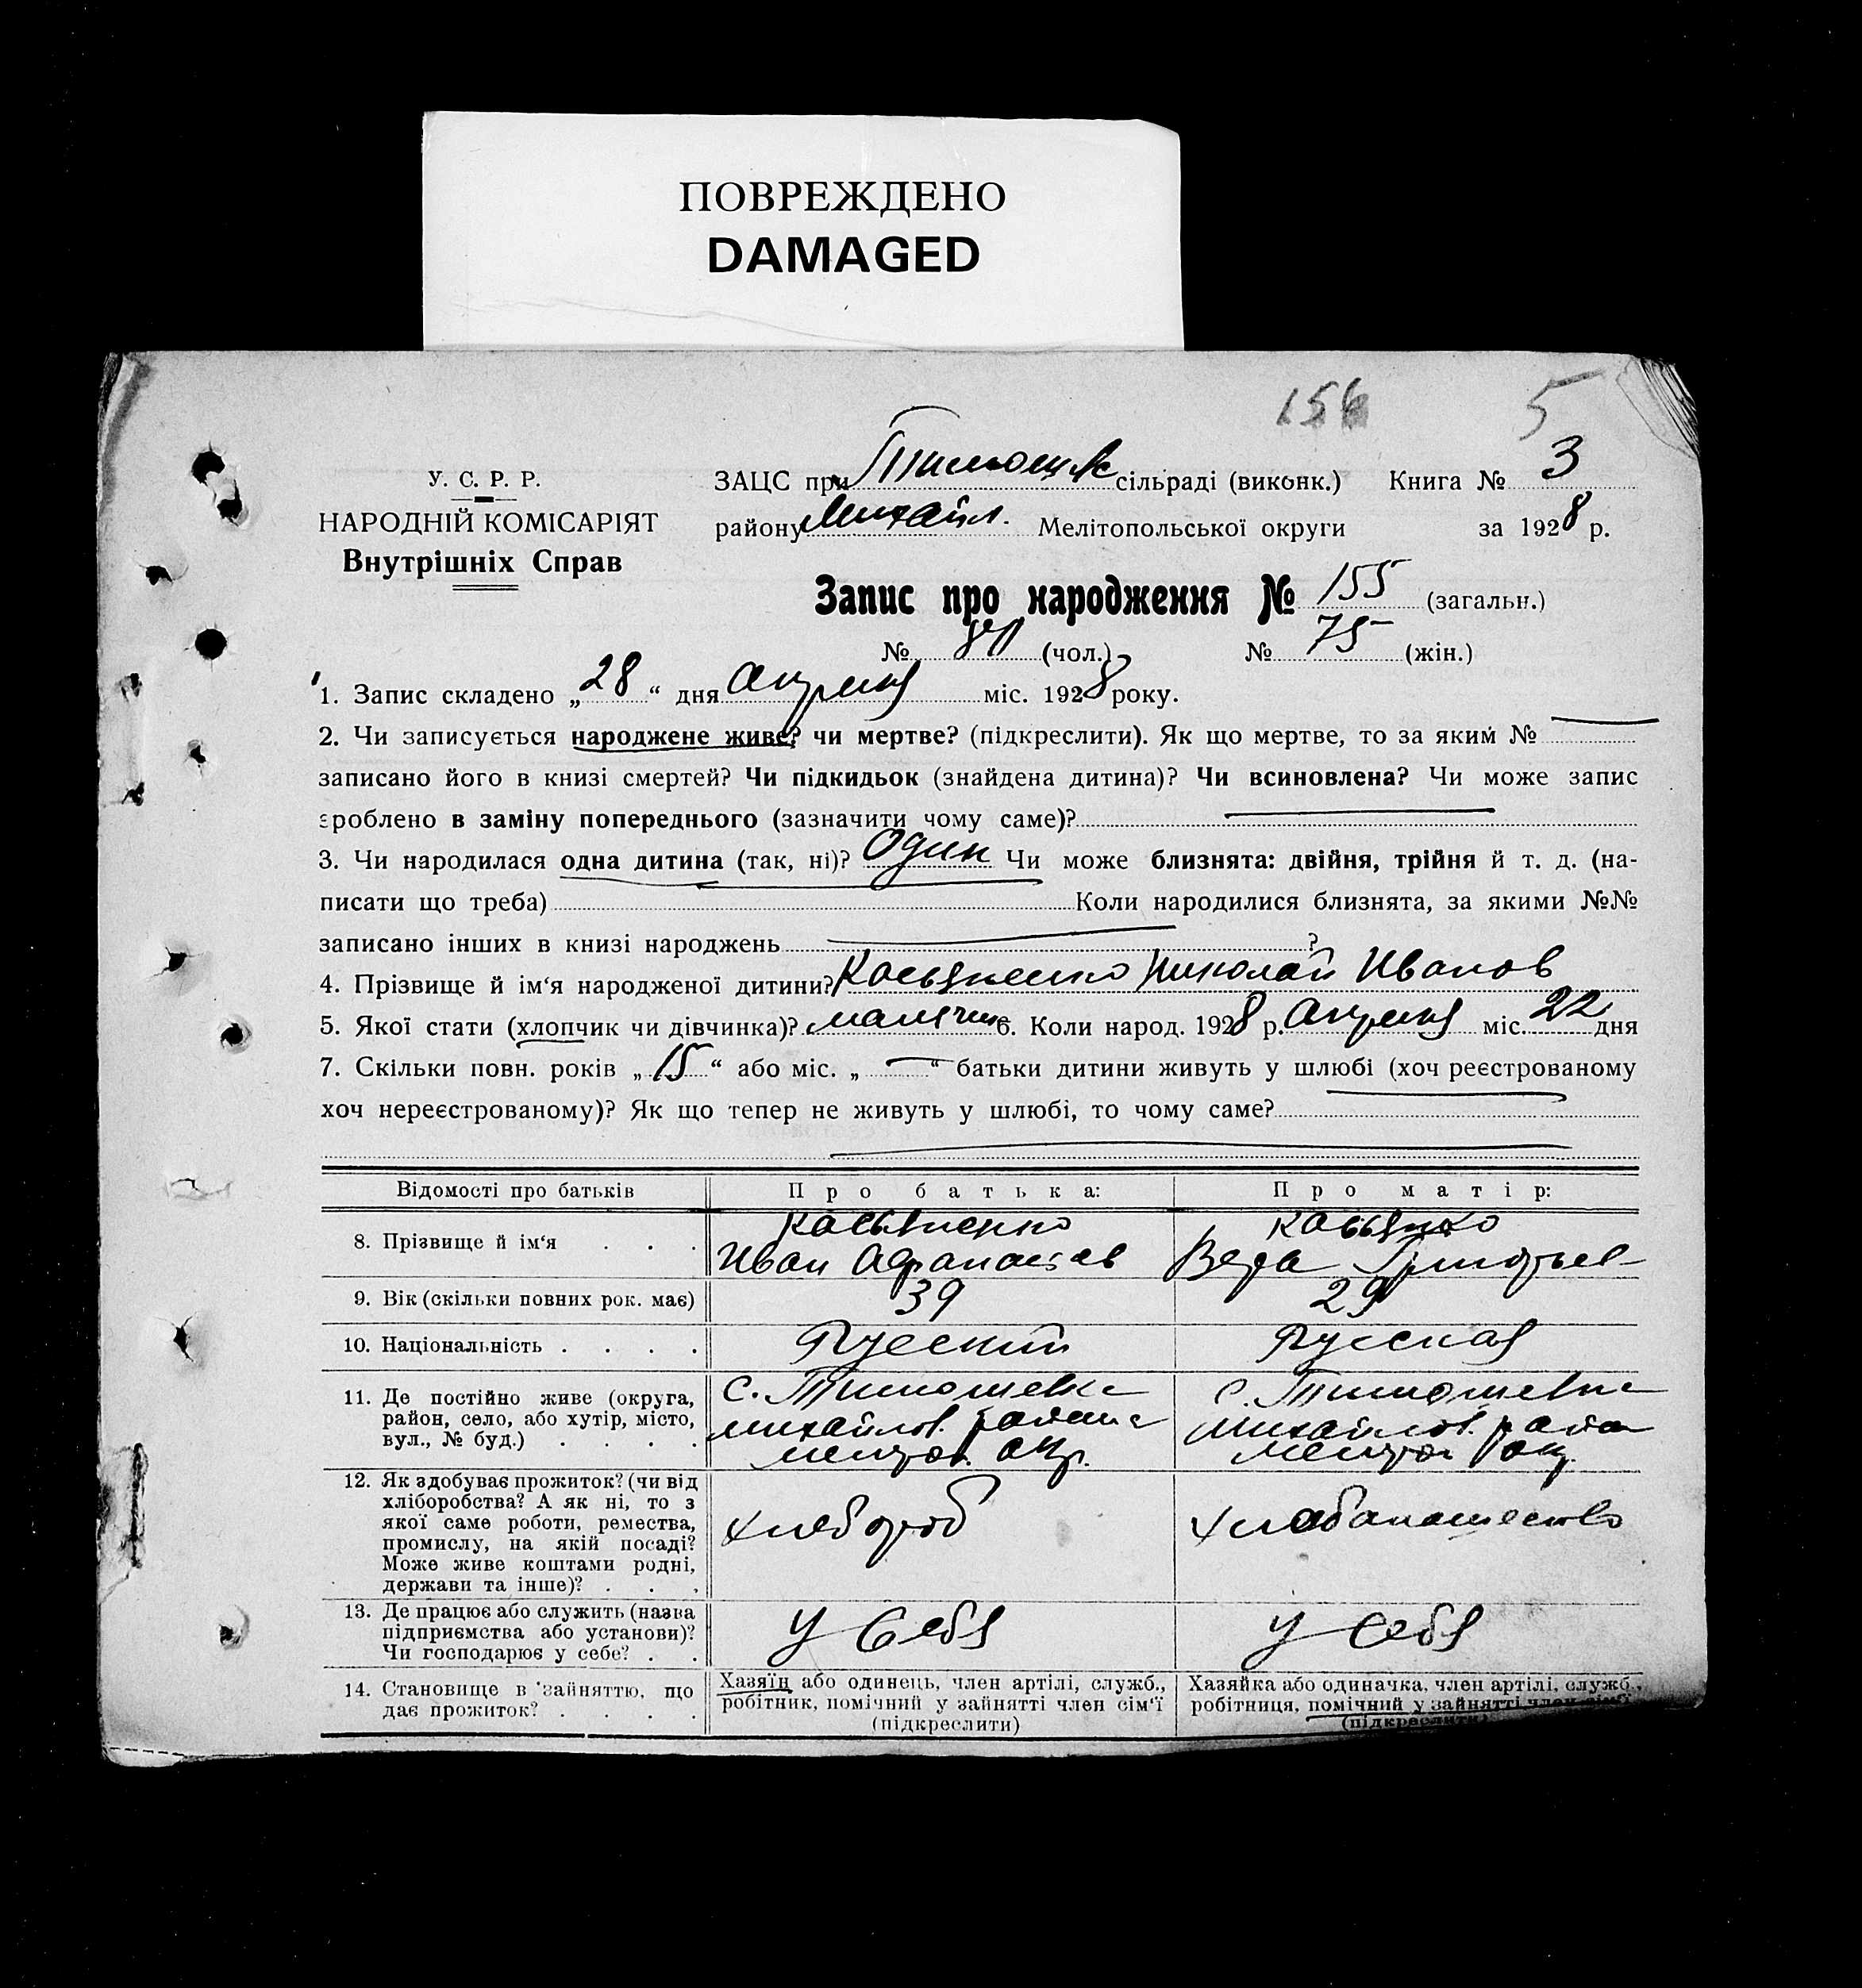 ПОВРЕЖДЕНО
DAMAGED
156 5
У. С. Р. Р.
НАРОДНІЙ КОМІСАРІЯТ
Внутрішніх Справ
ЗАЦС при Тимошев сільраді (виконк.) Книга № 3
району Михайл. Мелітопольської округи за 1928 р.
Запис про народження № 155 (загальн.)
№ (чол.) № 75 (жін.)
1. Запис складено „28“ дня Апреля міс. 1928 року.
2. Чи записується народжене живе? чи мертве? (підкреслити). Як що мертве, то за яким №
записано його в книзі смертей? Чи підкидьок (знайдена дитина)? Чи всиновлена? Чи може запис
зроблено в заміну попереднього (зазначити чому саме)?
3. Чи народилася одна дитина (так, ні)? Один Чи може близнята: двійня, трійня й т. д. (на-
писати що треба) Коли народилися близнята, за якими №№
записано інших в книзі народжень ?
4. Прізвище й ім‘я народженої дитини? Касьяненко Николай Иванов
5. Якої стати (хлопчик чи дівчинка)? мальчик 6. Коли народ. 1928 р. Апреля міс. 22 дня
7. Скільки повн. років „15“ або міс. „—“ батьки дитини живуть у шлюбі (хоч реєстрованому
хоч нереєстрованому)? Як що тепер не живуть у шлюбі, то чому саме?
Відомості про батьків Про батька: Про матір:
8. Прізвище й ім‘я . . . Касьяненко Иван Афанасьев
Вера Григорьев
9. Вік (скільки повних рок. має) 39 29
10. Національність . . . . Русский Русская
11. Де постійно живе (округа,
район, село, або хутір, місто,
вул., № буд.) . . . .
с. Тимошевка
михайлов. района
мелитоп. окр.
с. Тимошевка
михайлов. района
мелитоп окр.
12. Як здобуває прожиток? (чи від
хліборобства? А як ні, то з
якої саме роботи, ремества,
промислу, на якій посаді?
Може живе коштами родні,
держави та інше)? . . .
хлебороб
хлебопашество
13. Де працює або служить (назва
підприємства або установи)?
Чи господарює у себе? . .
У Себя
У себя
14. Становище в зайняттю, що
дає прожиток? . . . .
Хазяїн або одинець, член артілі, служб.,
робітник, помічний у зайнятті член сім‘ї
(підкреслити)
Хазяйка або одиначка, член артілі, служб.,
робітниця, помічний у зайнятті член сім‘ї
(підкреслити)